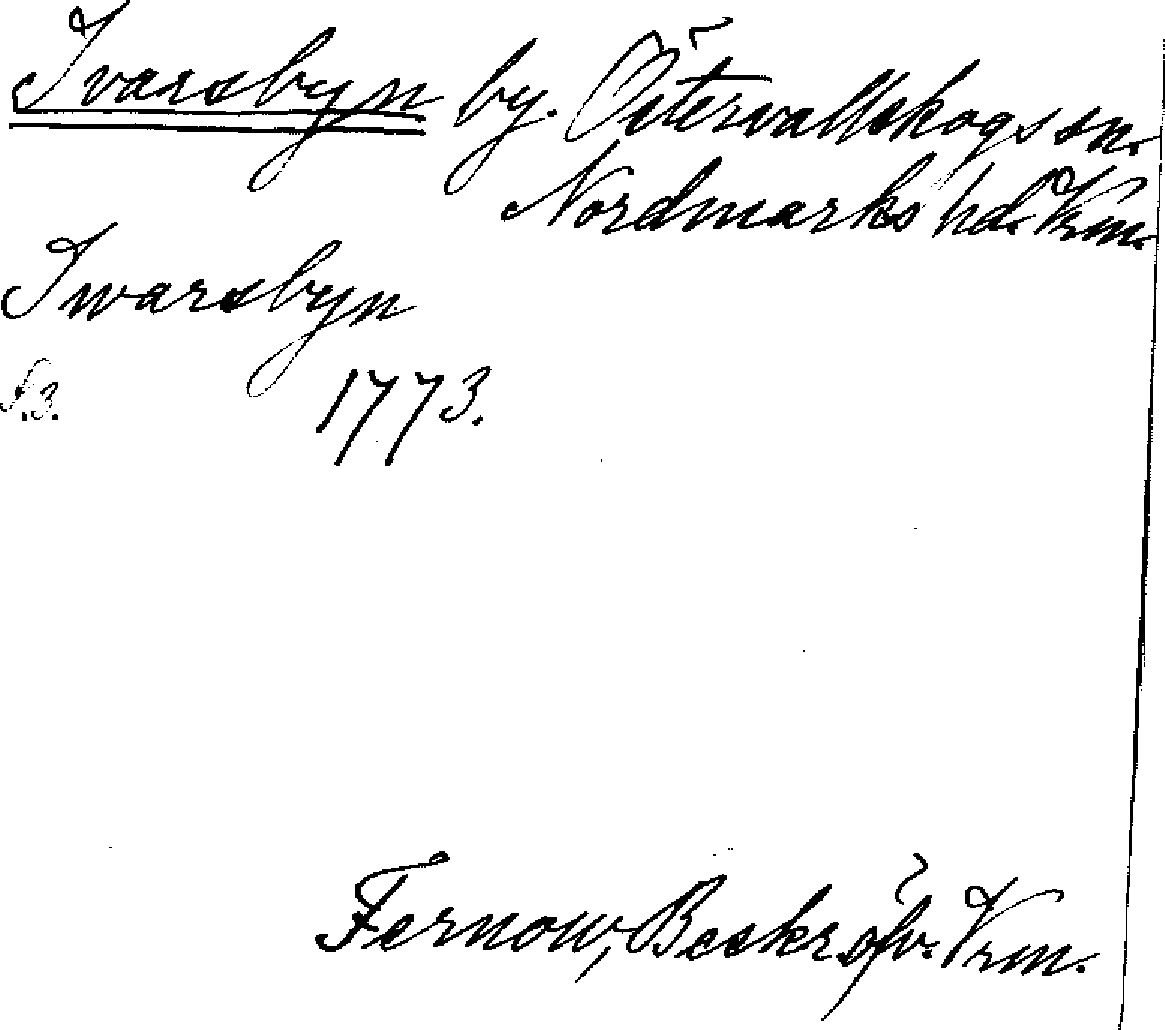 Ivarsbyn by. Östervallskogs sn.
Nordmarks hd. Vrm.
Iwarsbyn
f.3. 1773.
Fernow, Beskr. öfv. Vrm.